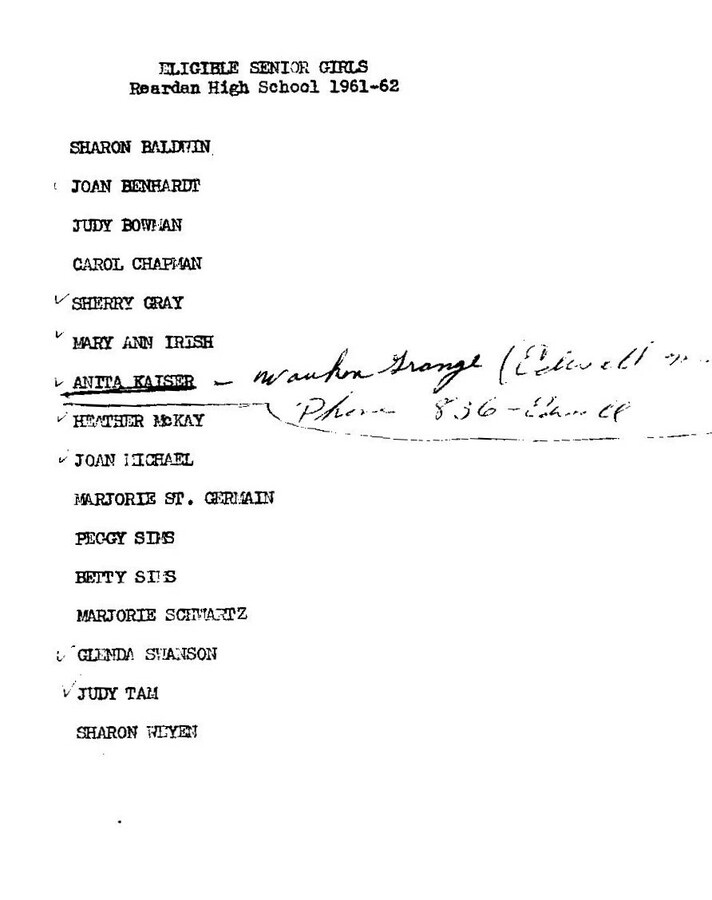 ELIGIBLE SENIOR GIRLS
Reardan High School 1961-62
SHARON BALDWIN
JOAN BENHARDT
JUDY BOWMAN
CAROL CHAPMAN
✓ SHERRY GRAY
✓ MARY ANN IRISH
✓ ANITA KAISER — Waukon Grange (Edwall
Phone 836-Edwall
✓ HEATHER McKAY
✓ JOAN MICHAEL
MARJORIE ST. GERMAIN
PEGGY SIMS
BETTY SIMS
MARJORIE SCHWARTZ
✓ GLENDA SWANSON
✓ JUDY TAM
SHARON WEYEN